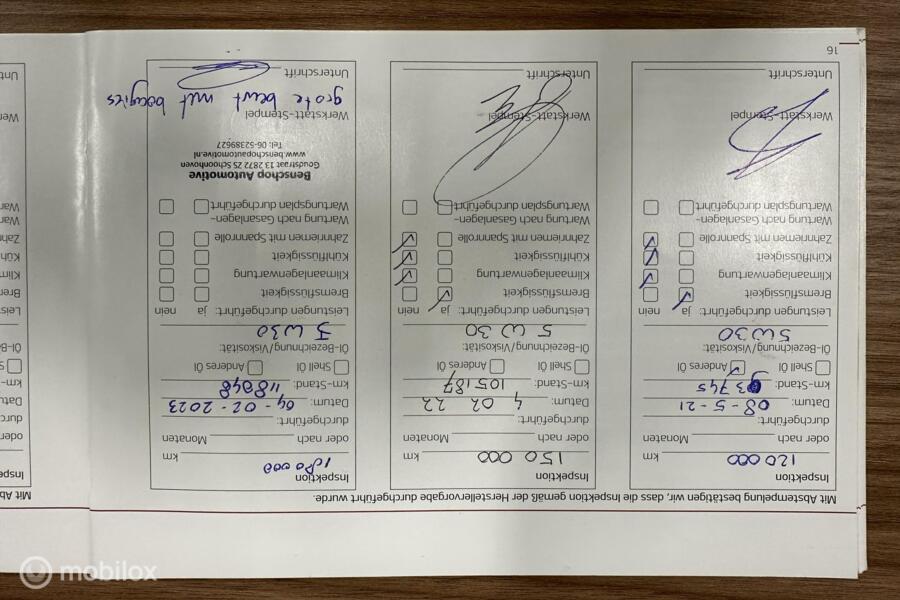 Mit Abstempelung bestätigen wir, dass die Inspektion gemäß der Herstellervorgabe durchgeführt wurde.
Inspektion
120 000 km
oder nach Monaten
durchgeführt:
Datum: 08-5-21
km-Stand: 93745
Shell Öl Anderes Öl
Öl-Bezeichnung/Viskosität:
5W30
Leistungen durchgeführt: ja nein
Bremsflüssigkeit
Klimaanlagenwartung
Kühlflüssigkeit
Zahnriemen mit Spannrolle
Wartung nach Gasanlagen-
Wartungsplan durchgeführt
Werkstatt-Stempel
16
Inspektion
150 000 km
oder nach Monaten
durchgeführt:
Datum: 4 02 22
km-Stand: 105187
Shell Öl Anderes Öl
Öl-Bezeichnung/Viskosität:
5W30
Leistungen durchgeführt: ja nein
Bremsflüssigkeit
Klimaanlagenwartung
Kühlflüssigkeit
Zahnriemen mit Spannrolle
Wartung nach Gasanlagen-
Wartungsplan durchgeführt
Werkstatt-Stempel
Unterschrift
Inspektion
180000 km
oder nach Monaten
durchgeführt:
Datum: 04-02-2023
km-Stand: 118048
Shell Öl Anderes Öl
Öl-Bezeichnung/Viskosität:
W30
Leistungen durchgeführt: ja nein
Bremsflüssigkeit
Klimaanlagenwartung
Kühlflüssigkeit
Zahnriemen mit Spannrolle
Wartung nach Gasanlagen-
Wartungsplan durchgeführt
Benschop Automotive
Goudstraat 13 2872 ZS Schoonhoven
www.benschopautomotive.nl
Tel: 06-52389627
Werkstatt-Stempel
grote beurt met bougies
Unterschrift
Mit Ab
Inspek
oder
durch
Datum
km-
Öl-Be
Leist
Brem
Klim
Kühl
Zahn
War
War
Wer
Unt
mobilox